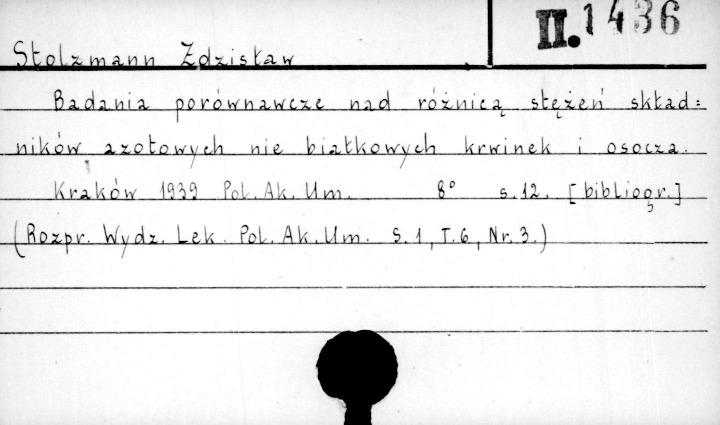 II. 1436
Stolzmann Zdzisław
Badania porównawcze nad różnicą stężeń skład=
ników azotowych nie białkowych krwinek i osocza.
Kraków 1939 Pol. Ak. Um. 8° s. 12. [bibliogr.]
(Rozpr. Wydz. Lek. Pol. Ak. Um. S. 1, T. 6, Nr. 3.)